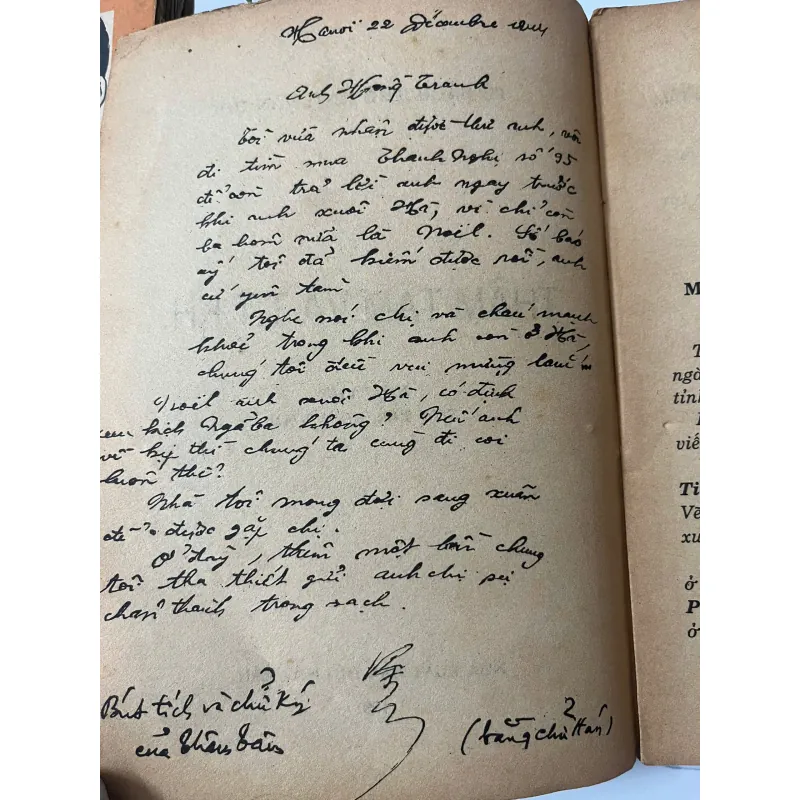 Hanoi 22 Décembre 1944
Anh Hoàng Tranh
Tôi vừa nhận được thư anh, vội
đi tìm mua Thanh Nghị số 95
để còn trả lời anh ngay trước
khi anh xuôi Hà, vì chỉ còn
ba hôm nữa là Noël. Số báo
ấy tôi đã kiếm được rồi, anh
cứ yên tâm
Nghe nói chị và cháu mạnh
khoẻ trong khi anh còn ở Hà,
chúng tôi đều vui mừng lắm
Noël anh xuôi Hà, có định
xem kịch Ngã ba không? Nếu anh
về kịp thì chúng ta cùng đi coi
luôn thể?
Nhà tôi mong đợi sang xuân
để được gặp chị.
Ở đây, thêm một lần chung
tôi tha thiết gửi anh chị sự
chân thành trong sạch.
Bút tích và chữ ký
của Thâm Tâm
(bằng chữ Hán)
M
T
ngà
tỉnh
viế
Ti
Vẽ
xu
ở
P
ở